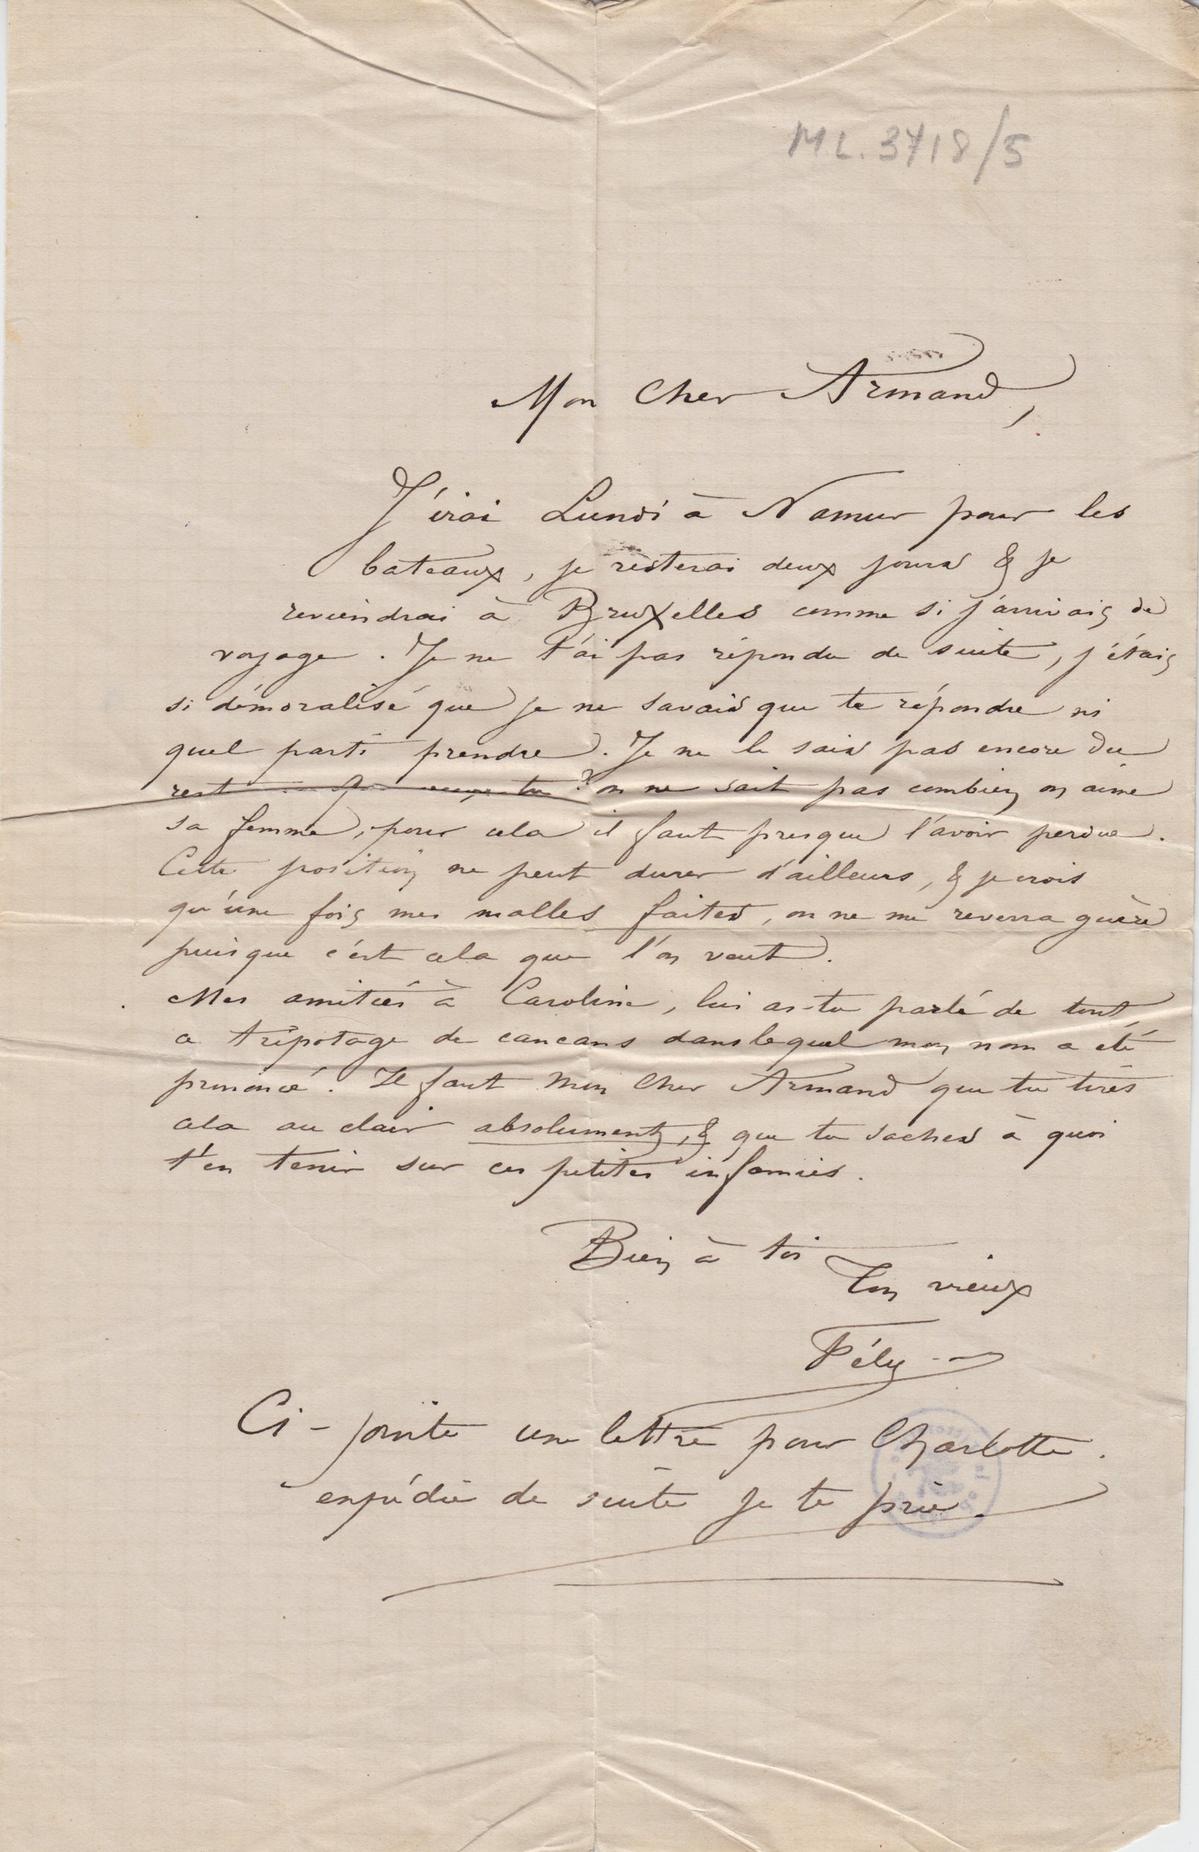 ML. 3718/5
Mon Cher Armand,
J'irai Lundi à Namur pour les
bateaux, je resterai deux jours & je
reviendrai à Bruxelles comme si j'arrivais de
voyage. Je ne t'ai pas répondu de suite, j'étais
si démoralisé que je ne savais que te répondre ni
quel parti prendre. Je ne le sais pas encore du
on ne sait pas combien on aime
sa femme, pour cela il faut presque l'avoir perdue.
Cette position ne peut durer d'ailleurs, & je crois
qu'une fois mes malles faites, on ne me reverra guère
puisque c'est cela que l'on veut.
Mes amitiés à Caroline, lui as-tu parlé de tout
ce tripotage de cancans dans lequel mon nom a été
prononcé. Il faut Mon Cher Armand que tu tires
cela au clair absolument, & que tu saches à quoi
t'en tenir sur ces petites infamies.
Bien à toi
Ton vieux
Fély
Ci-jointe une lettre pour Charlotte.
expédie de suite je te prie.